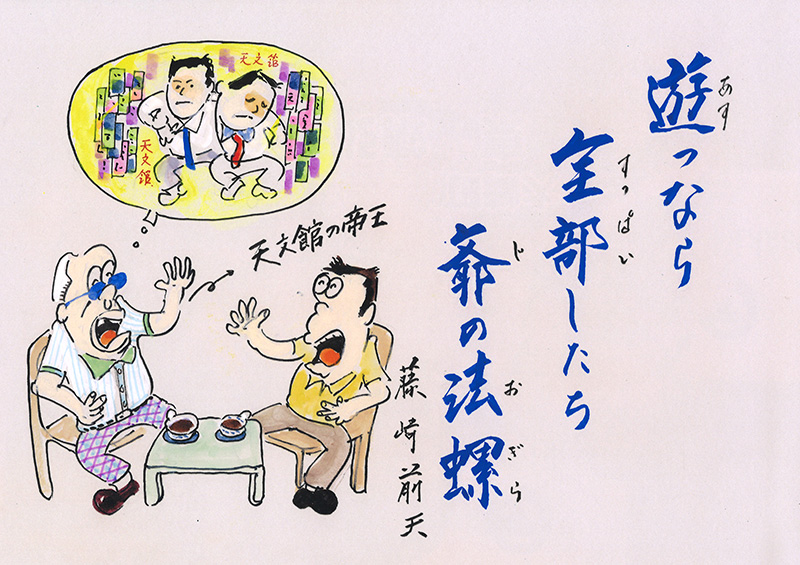 遊っなら
あす
全部したち
すっぱい
爺の法螺
じ おぎら
藤崎前天
天文館の帝王
天文館
天文館